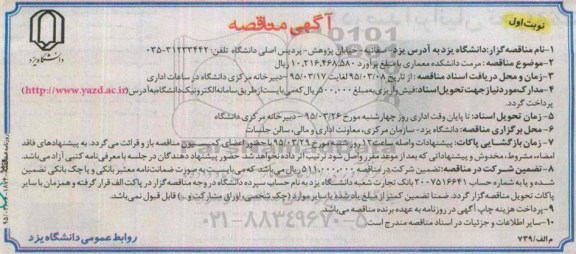 نوبت اول
آگهی مناقصه
دانشگاه یزد
۱-نام مناقصه گزار: دانشگاه یزد به آدرس یزد- صفائیه - خیابان پژوهش- پردیس اصلی دانشگاه تلفن: ۳۱۲۳۳۴۴۲-۰۳۵
۲-موضوع مناقصه: مرمت دانشکده معماری با مبلغ برآورد ۱۰,۲۱۶,۴۶۸,۵۸۰ ریال
۳-زمان و محل دریافت اسناد مناقصه: از تاریخ ۹۵/۰۳/۰۸ لغایت ۹۵/۰۳/۱۷ - دبیرخانه مرکزی دانشگاه در ساعات اداری
۴-مدارک مورد نیاز جهت تحویل اسناد: فیش واریزی به مبلغ ۵۰۰,۰۰۰ ریال که می بایست از طریق سامانه الکترونیک دانشگاه به آدرس (http://www.yazd.ac.ir)
پرداخت گردد.
۵-زمان تحویل اسناد: تا پایان وقت اداری روز چهارشنبه مورخ ۹۵/۰۳/۲۶ - دبیرخانه مرکزی دانشگاه
۶-محل برگزاری مناقصه: دانشگاه یزد- سازمان مرکزی، معاونت اداری و مالی، سالن جلسات
۷-زمان بازگشایی پاکات: پیشنهادات واصله ساعت ۱۲ روز شنبه مورخ ۹۵/۰۳/۲۹ با حضور اعضای کمیسیون مناقصه باز و قرائت می گردد. به پیشنهادهای فاقد
امضاء، مشروط، مخدوش و پیشنهاداتی که بعد از موعد مقرر واصل شود ترتیب اثر داده نخواهد شد. حضور پیشنهاد دهندگان در جلسه با معرفی نامه کتبی آزاد می باشد.
۸-تضمین شرکت در مناقصه: تضمین شرکت در مناقصه ۵۱۱,۰۰۰,۰۰۰ ریال می باشد که می بایست به صورت ضمانت نامه معتبر بانکی و یا چک بانکی تضمین
شده و یا به شماره حساب ۲۰۰۷۵۱۶۶۴۱ بانک تجارت شعبه دانشگاه یزد به نام حساب سپرده دانشگاه در وجه مناقصه گزار در پاکت الف قرار گرفته و همزمان با سایر
پاکات تحویل مناقصه گزار گردد. ضمناً تضمین کمتر از مبلغ یاد شده یا سایر موارد (چک شخصی، اوراق مشارکت و ..) قابل قبول نمی باشد.
۹-پرداخت هزینه چاپ آگهی در روزنامه به عهده برنده مناقصه می باشد.
۱۰-سایر اطلاعات و جزئیات در اسناد مناقصه مندرج است.
۰۲۱-۸۸۳۴۹۶۷۰-۵
م الف/۷۳۹
روابط عمومی دانشگاه یزد